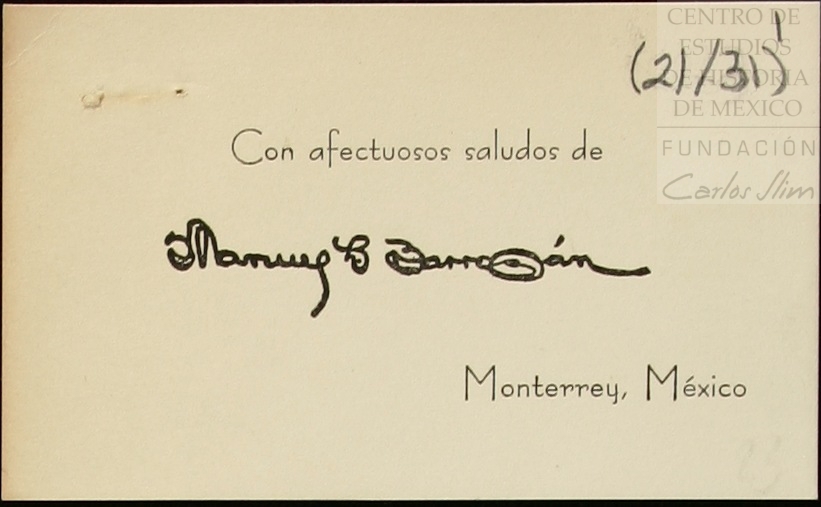 CENTRO DE
ESTUDIOS
DE HISTORIA
DE MÉXICO
FUNDACIÓN
Carlos Slim
(21/31)
Con afectuosos saludos de
Manuel Barragán
Monterrey, México